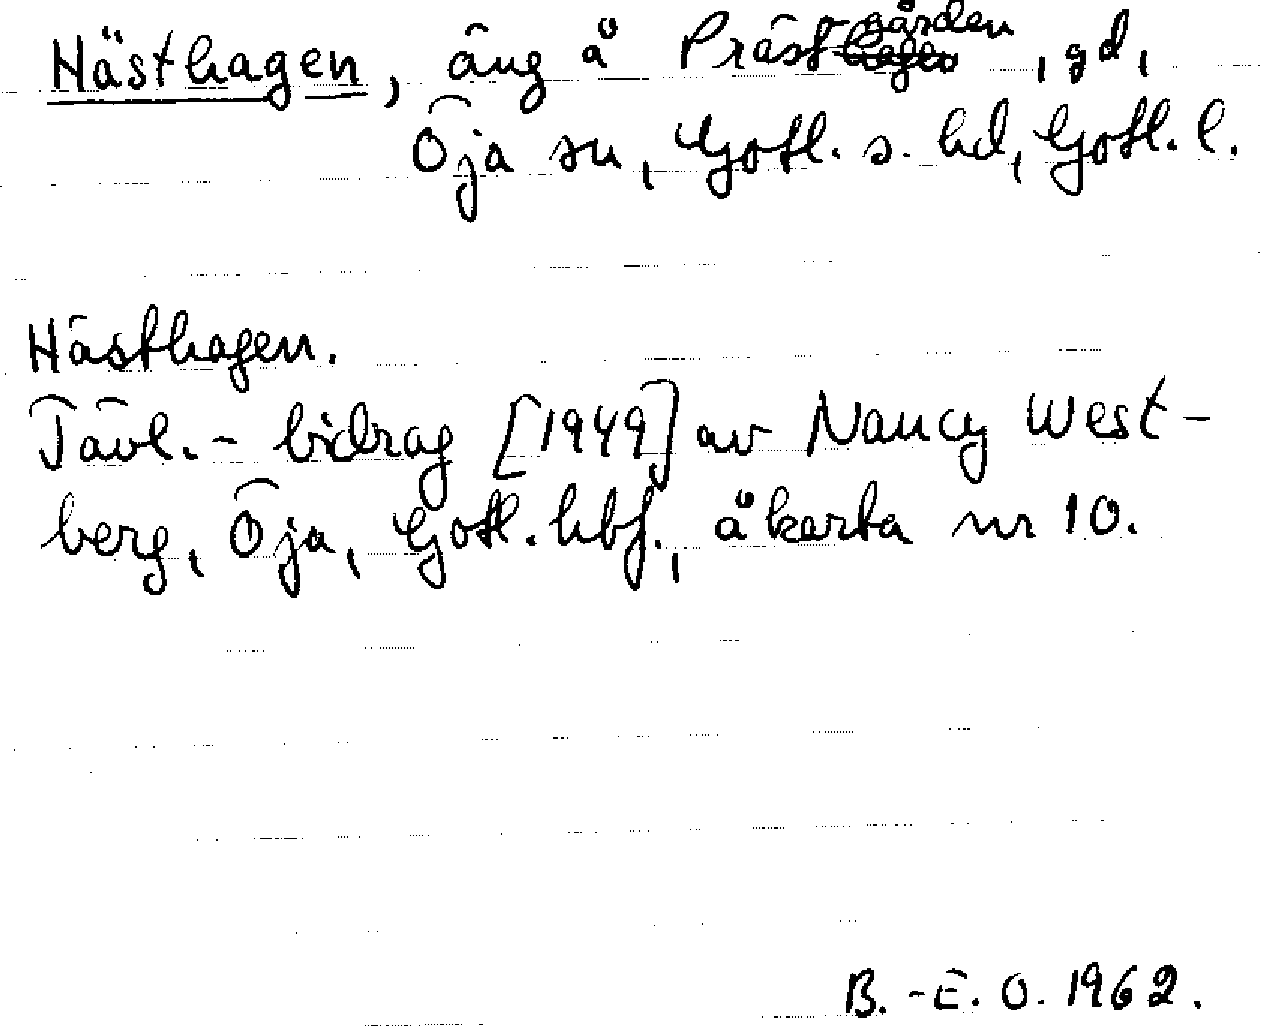 Hästhagen, äng å Prästgården, gd,
Öja sn, Gotl. s. hd, Gotl. l.
Hästhagen.
Tävl.- bidrag [1949] av Nancy West-
berg, Öja, Gotl. hbf., å karta nr 10.
B.-E. O. 1962.